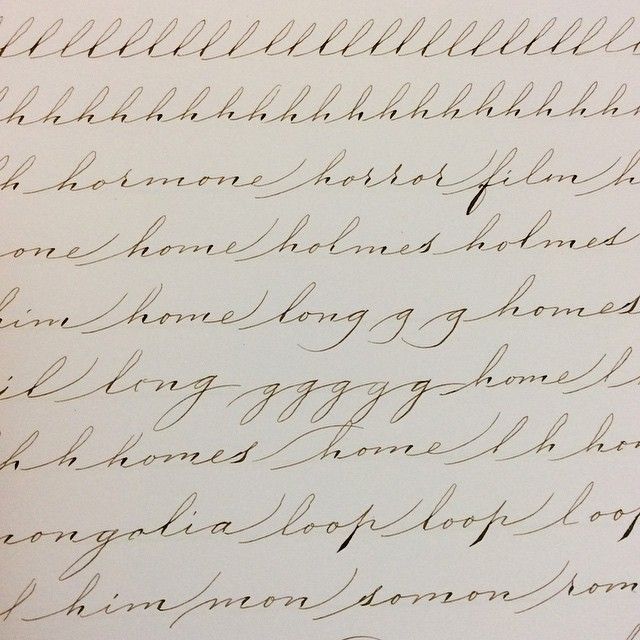 l l l l l l l l l l l l l l l l l l l l l l l l
h h h h h h h h h h h h h h h h h h h h h h h h
h hormone horror film h
one home holmes holmes
him home long g g homes
il long g g g g g home l
h h homes home l h hom
mongolia loop loop loop
l him mon somon rom